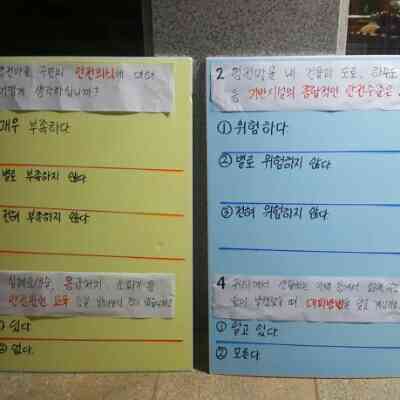 주민의 안전의식에 대해
어떻게 생각하십니까?
매우 부족하다
별로 부족하지 않다
전혀 부족하지 않다
심폐소생술, 응급처치, 소화기 등
안전관련 교육
있다
② 없다
2 안전마을 내 건물과 도로, 하수도
등 기반시설의 종합적인 안전수준은
① 위험하다
② 별로 위험하지 않다
③ 전혀 위험하지 않다
4
때 대피방법을 알고 계신가요
① 알고 있다
② 모른다